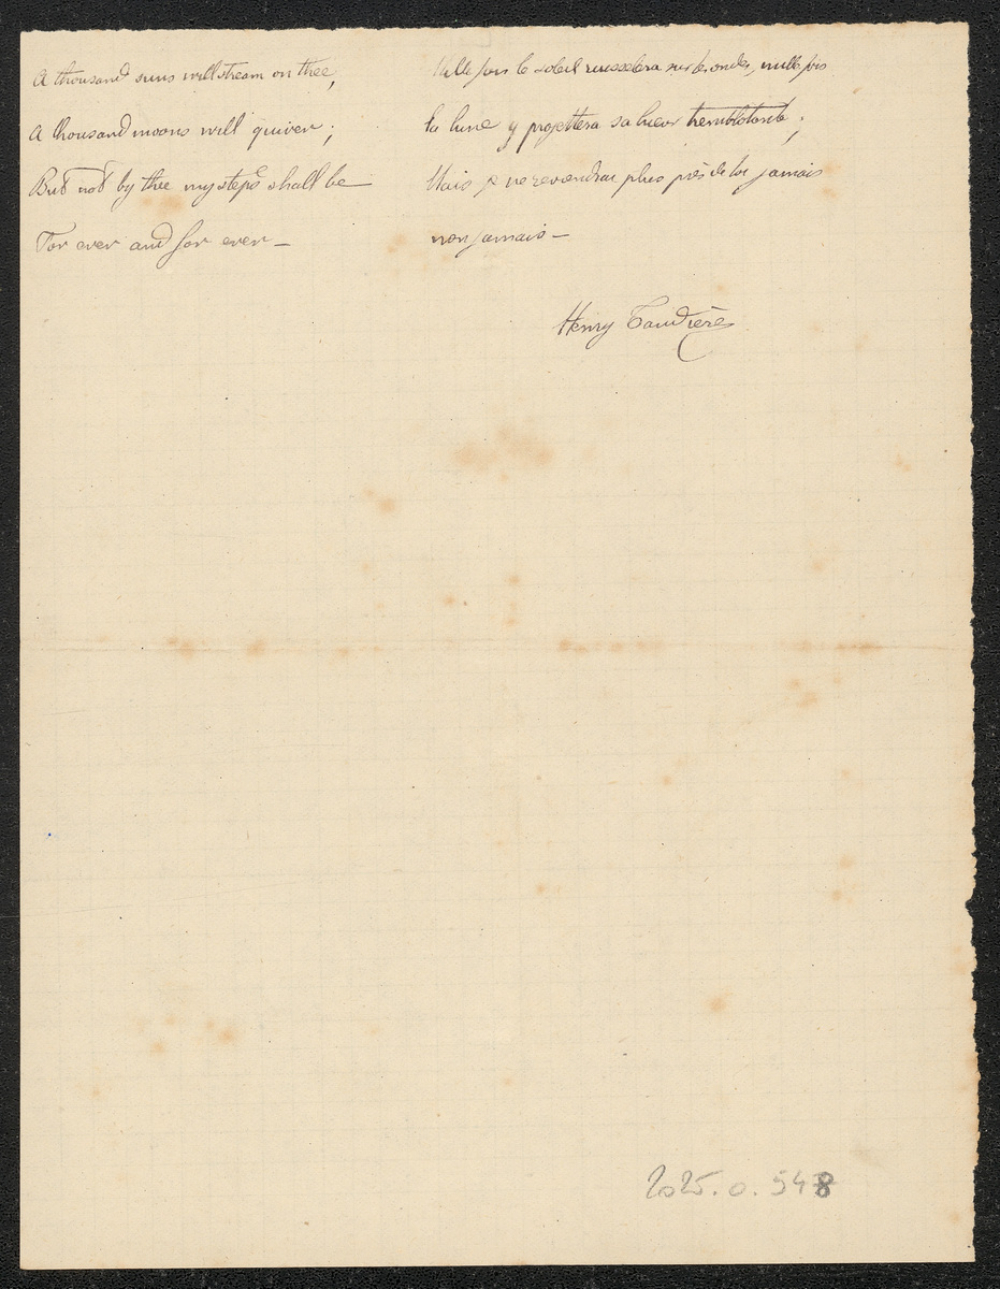 A thousand suns will stream on thee,
A thousand moons will quiver;
But not by thee my steps shall be
For ever and for ever —
Mille fois le soleil ruissellera sur tes ondes, mille fois
la lune y projettera sa lueur tremblotante;
Mais je ne reviendrai plus près de toi jamais
non jamais —
Henry
2025.0.548